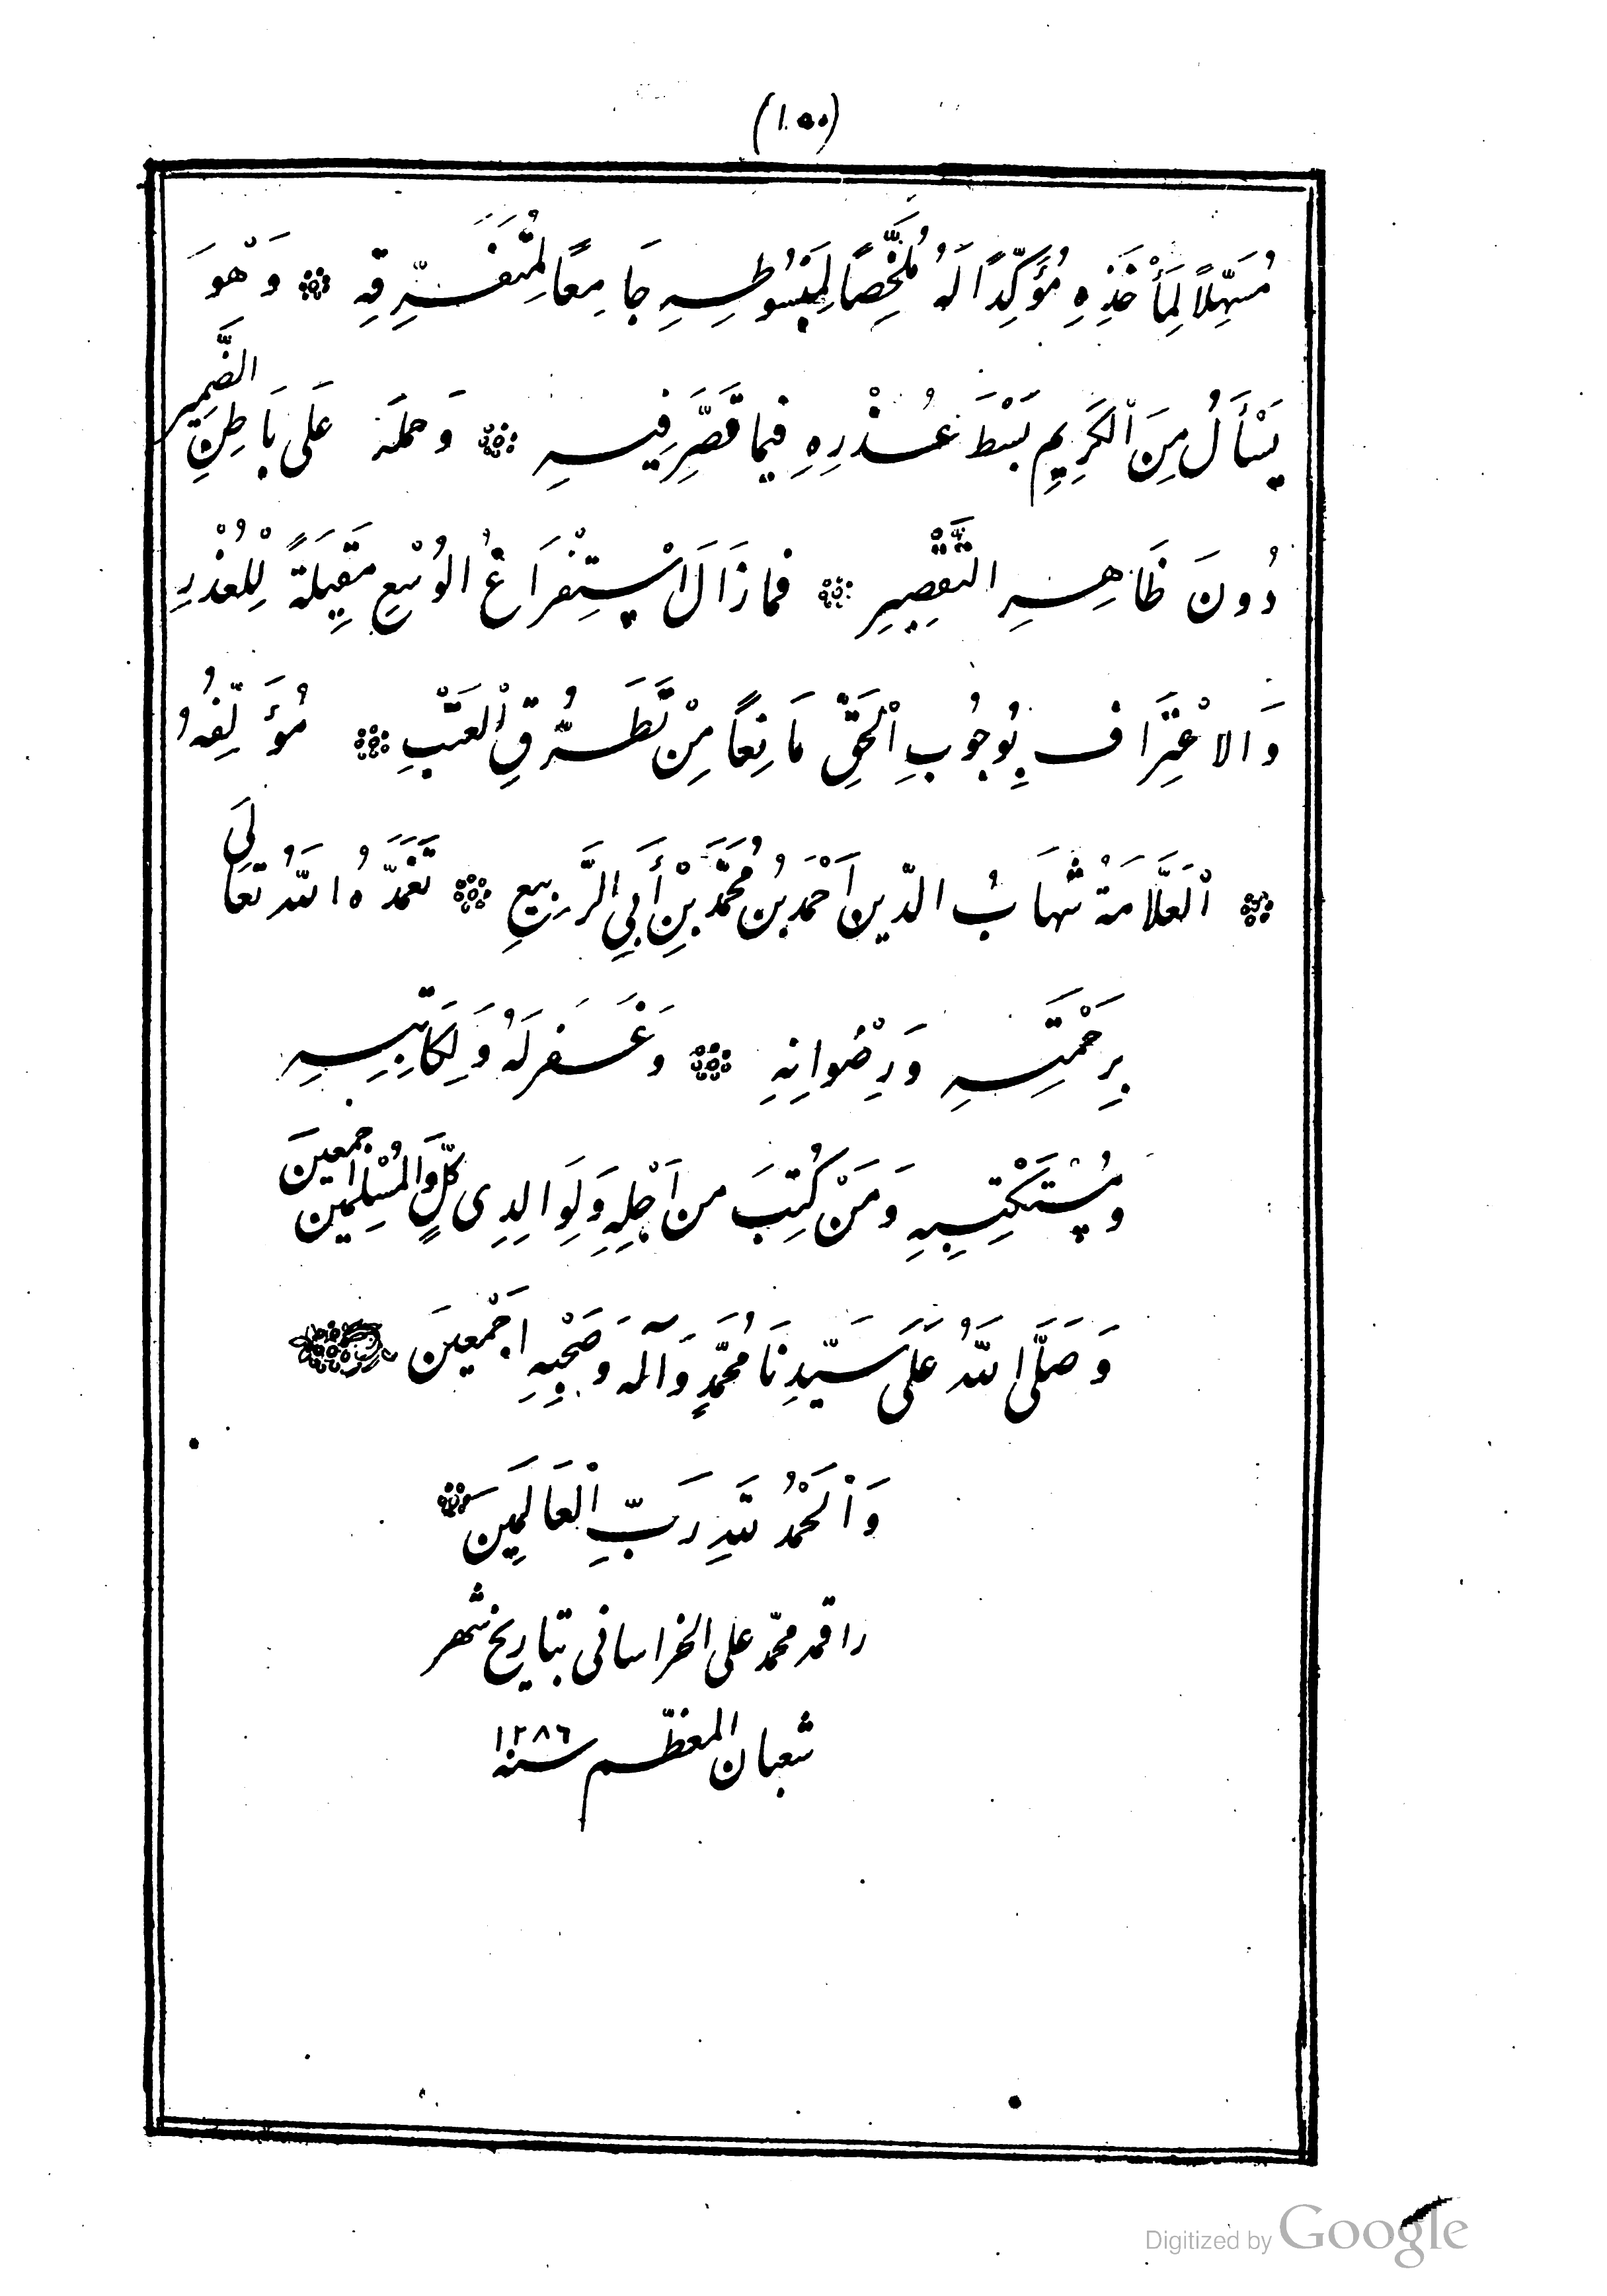 (١٥٠)
مُسَهِّلاً لِمَأْخَذِهِ مُؤَكِّدًا لَهُ مُلَخِّصًا لِمَبْسُوطِهِ جَامِعًا لِمُتَفَرِّقِهِ ۞ وَهْوَ
يَسْأَلُ مِنَ الْكَرِيمِ بَسْطَ عُذْرِهِ فِيمَا قَصَّرَ فِيهِ ۞ وَحَمْلَهُ عَلَى بَاطِنِ الضَّمِيرِ
دُونَ ظَاهِرِ التَّقْصِيرِ ۞ فَمَا زَالَ اسْتِفْرَاغُ الْوُسْعِ مَقِيلَةً لِلْعُذْرِ
وَالاعْتِرَافُ بِوُجُوبِ الْحَقِّ مَانِعًا مِنْ تَطَرُّقِ الْعَتْبِ ۞ مُؤَلِّفُهُ
۞ الْعَلَّامَةُ شَهَابُ الدِّينِ اَحْمَدُ بْنُ مُحَمَّدِ بْنِ أَبِي الرَّبِيعِ ۞ تَغَمَّدَهُ اللهُ تَعَالَى
بِرَحْمَتِهِ وَرِضْوانِهِ ۞ وَغَفَرَ لَهُ وَلِكَاتِبِهِ
وَمُسْتَكْتِبِهِ وَمَنْ كُتِبَ مِن اَجْلِهِ وَلِوَالِدِى كُلٍّ وَالْمُسْلِمِينَ اجمعينَ
وَصَلَّى اللهُ عَلَى سَيِّدِنَا مُحَمَّدٍ وَآلِهِ وَصَحْبِهِ اَجْمَعِينَ
وَالْحَمْدُ لِلَّهِ رَبِّ الْعَالَمِينَ ۞
راقمه محمّد على الخراسانى بتاريخ شهر
شعبان المعظّم سنه ١٢٨٦
Digitized by Google